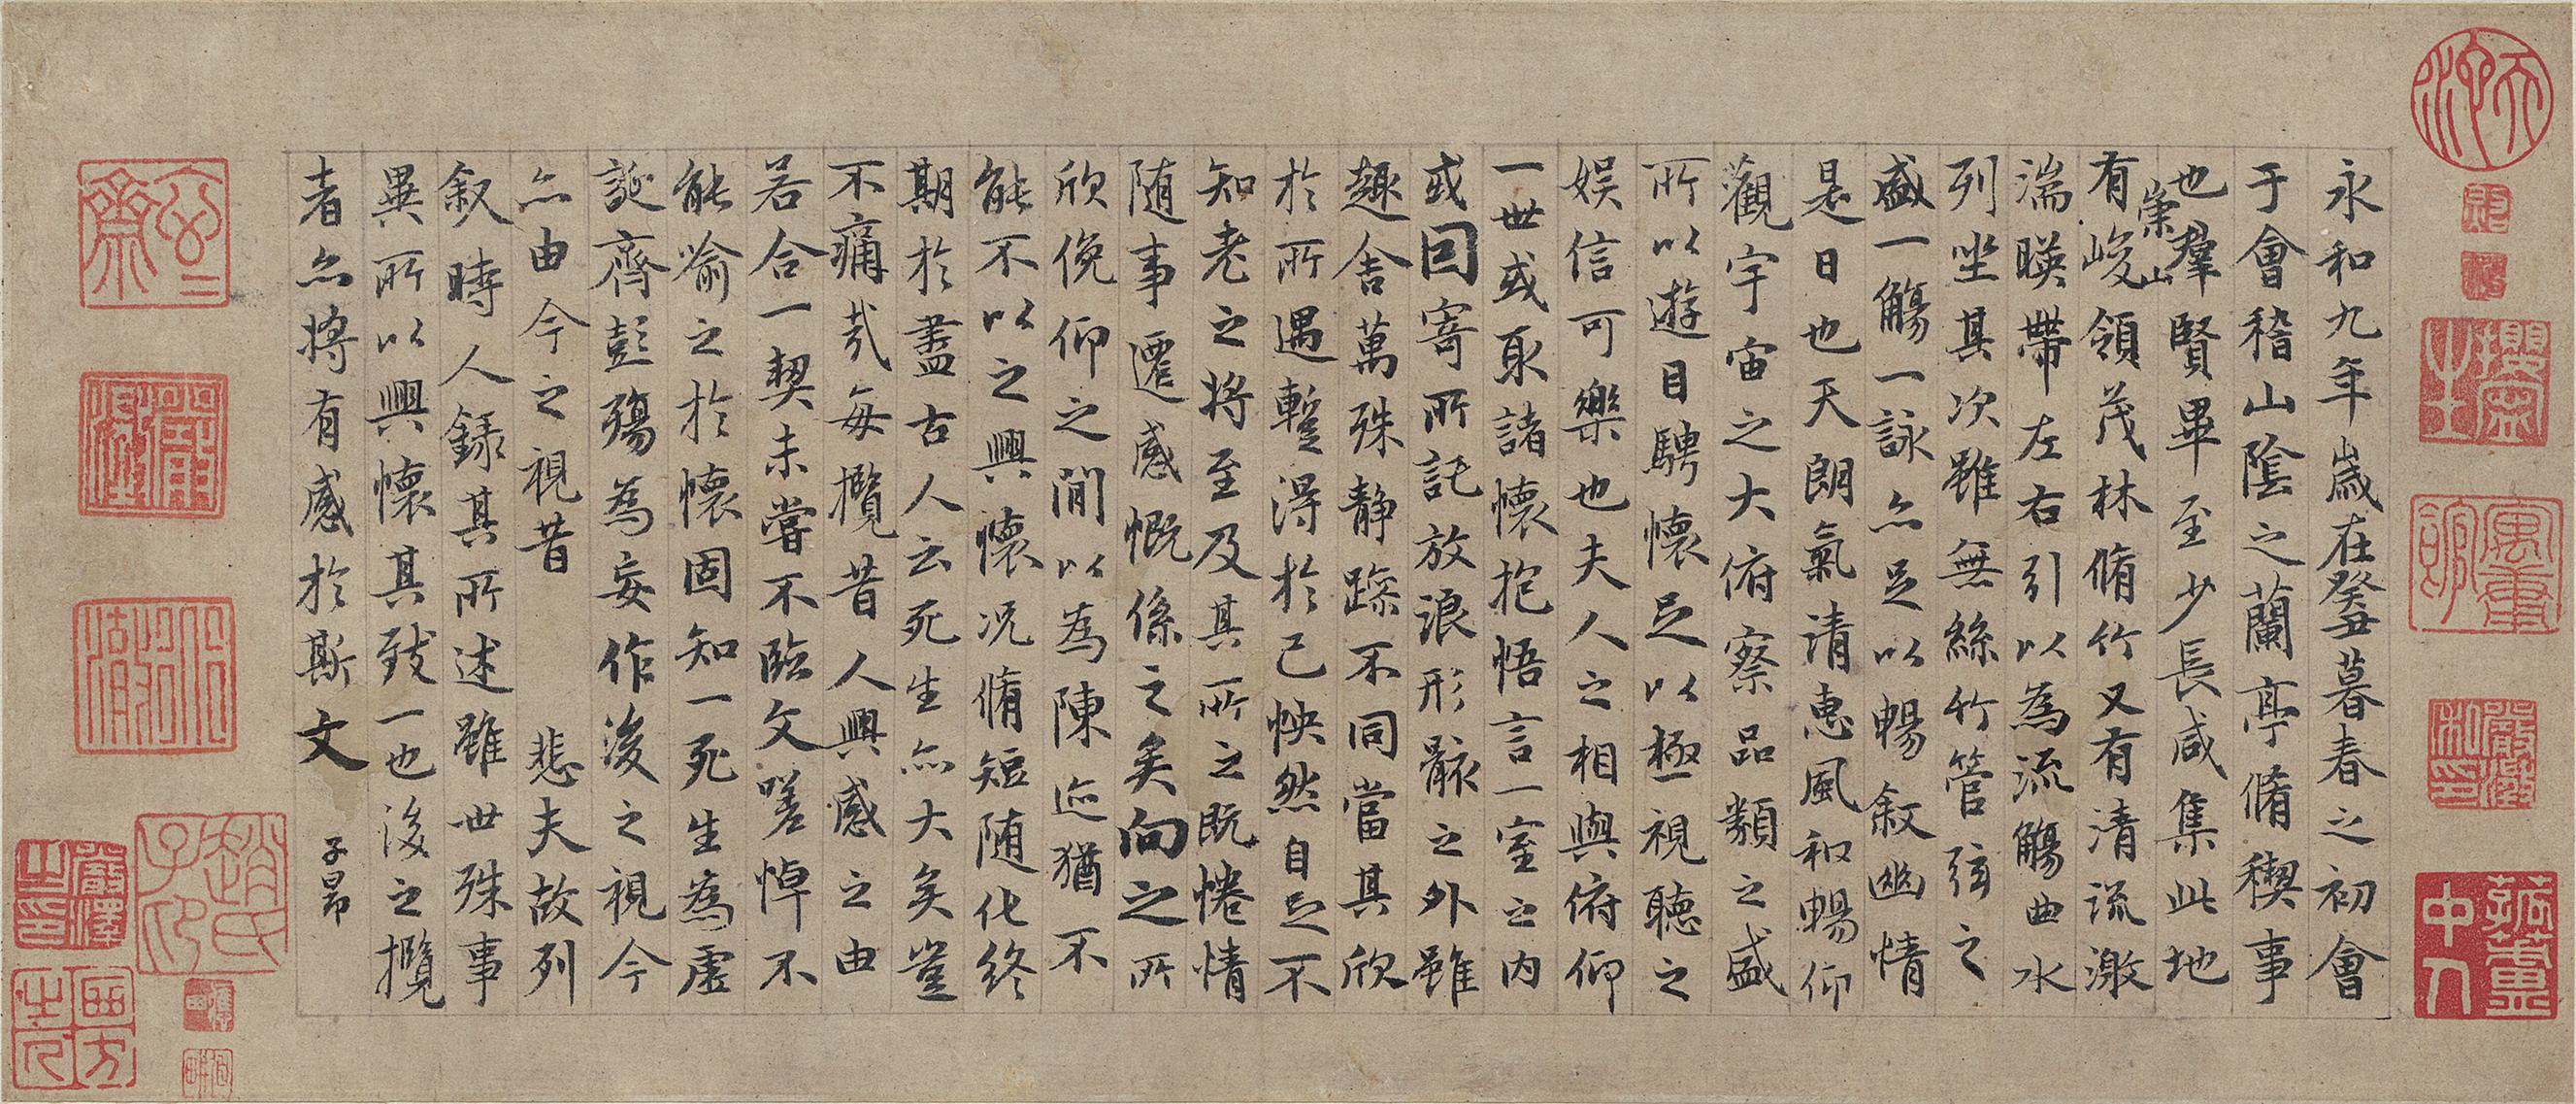 永和九年歲在癸丑暮春之初會
于會稽山陰之蘭亭脩稧事
也羣賢畢至少長咸集此地
有崇山峻領茂林脩竹又有清流激
湍暎帶左右引以為流觴曲水
列坐其次雖無絲竹管弦之
盛一觴一詠亦足以暢敘幽情
是日也天朗氣清惠風和暢仰
觀宇宙之大俯察品類之盛
所以遊目騁懷足以極視聽之
娛信可樂也夫人之相與俯仰
一世或取諸懷抱悟言一室之內
或因寄所託放浪形骸之外雖
趣舍萬殊静躁不同當其欣
於所遇蹔得於己怏然自足不
知老之將至及其所之既惓情
隨事遷感慨係之矣向之所
欣俛仰之閒以為陳迹猶不
能不以之興懷況脩短隨化終
期於盡古人云死生亦大矣豈
不痛哉每攬昔人興感之由
若合一契未嘗不臨文嗟悼不
能喻之於懷固知一死生為虛
誕齊彭殤為妄作後之視今
亦由今之視昔 悲夫故列
敘時人錄其所述雖世殊事
異所以興懷其致一也後之攬
者亦將有感於斯文
子昂
趙氏子印
嚴澤之印